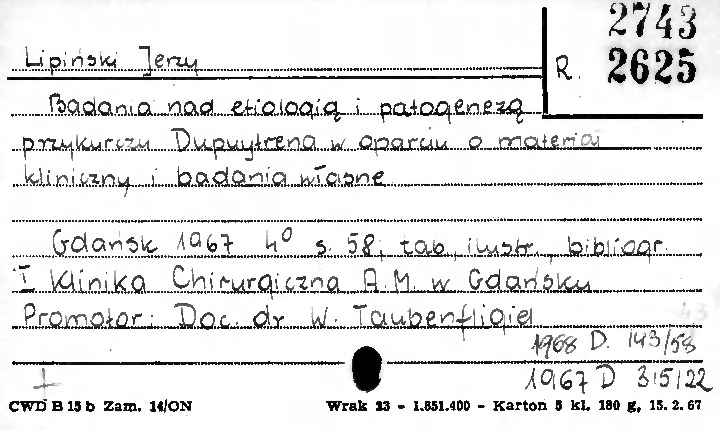 2743
Lipiński Jerzy R. 2625
Badania nad etiologią i patogenezą
przykurczu Dupuytrena w oparciu o materiał
kliniczny i badania własne
Gdańsk 1967 4⁰ s. 58, tab., ilustr., bibliogr.
I Klinika Chirurgiczna A.M. w Gdańsku
Promotor: Doc. dr W. Taubenfligiel
1968 D. 143/58
1967 D 315/22
CWD B 15 b Zam. 14/ON Wrak 23 - 1.851.400 - Karton 5 kl. 180 g, 15. 2. 67